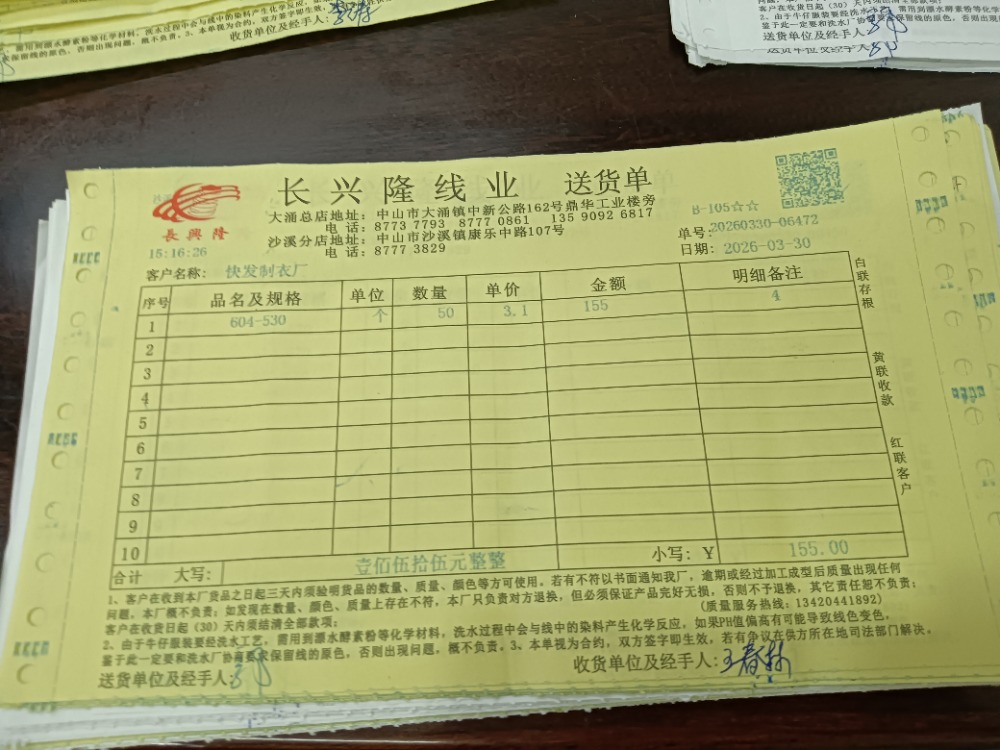 需用到漂水酵素粉等化学材料，洗水过程中会与线中的染料产生化学反应，
保留线的原色，否则出现问题，概不负责。3、本单视为合约，双方签字即生效，
收货单位及经手人:
客户在收货日起（30）天内须
2、由于牛仔服装要经洗水
鉴于此一定要和洗水厂
送货单位及经手人
長興隆
长兴隆线业 送货单
大涌总店地址：中山市大涌镇中新公路162号鼎华工业楼旁
电话：8773 7793 8777 0861 135 9092 6817
沙溪分店地址：中山市沙溪镇康乐中路107号
电话：8777 3829
B-105☆☆
单号:20260330-06472
日期: 2026-03-30
15:16:26
客户名称: 快发制衣厂
序号 品名及规格 单位 数量 单价 金额 明细备注
1 604-530 个 50 3.1 155 4
2
3
4
5
6
7
8
9
10
合计 大写: 壹佰伍拾伍元整整 小写: ¥ 155.00
白联存根
黄联收款
红联客户
1、客户在收到本厂货品之日起三天内须验明货品的数量、质量、颜色等方可使用。若有不符以书面通知我厂，逾期或经过加工成型后质量出现任何
问题，本厂概不负责；如发现在数量、颜色、质量上存在不符，本厂只负责对方退换，但必须保证产品完好无损，否则不予退换，其它责任恕不负责；
客户在收货日起（30）天内须结清全部款项； (质量服务热线: 13420441892)
2、由于牛仔服装要经洗水工艺，需用到漂水酵素粉等化学材料，洗水过程中会与线中的染料产生化学反应，如果PH值偏高有可能导致线色变色，
鉴于此一定要和洗水厂协商要求保留线的原色，否则出现问题，概不负责。3、本单视为合约，双方签字即生效，若有争议在供方所在地司法部门解决。
送货单位及经手人: 收货单位及经手人: 王春林